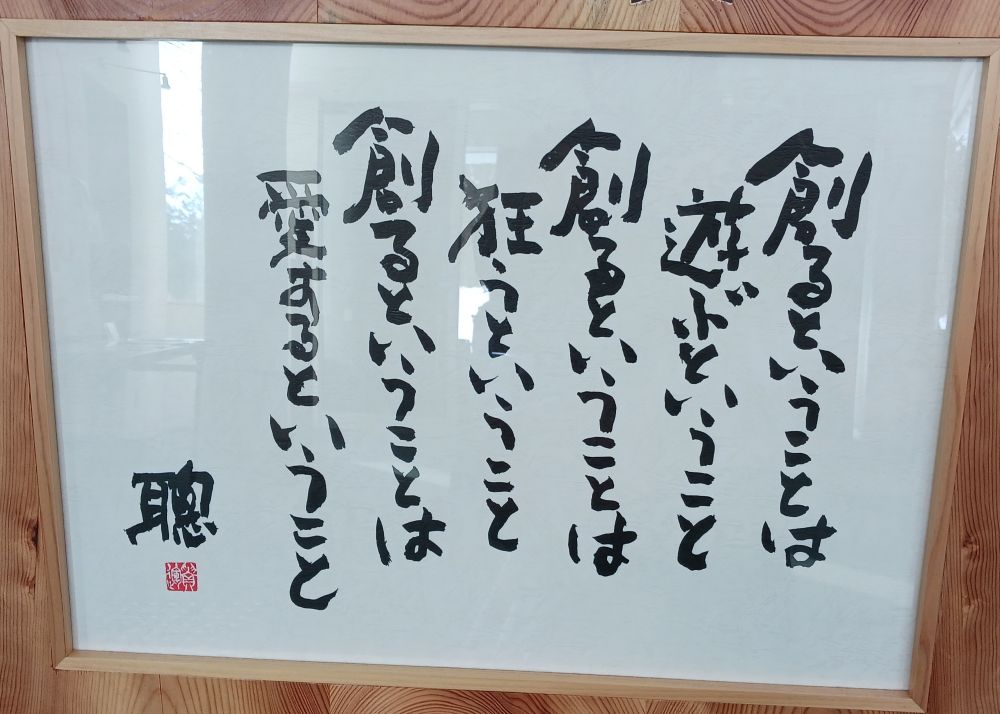 創るということは
遊ぶということ
創るということは
狂うということ
創るということは
愛するということ
聰